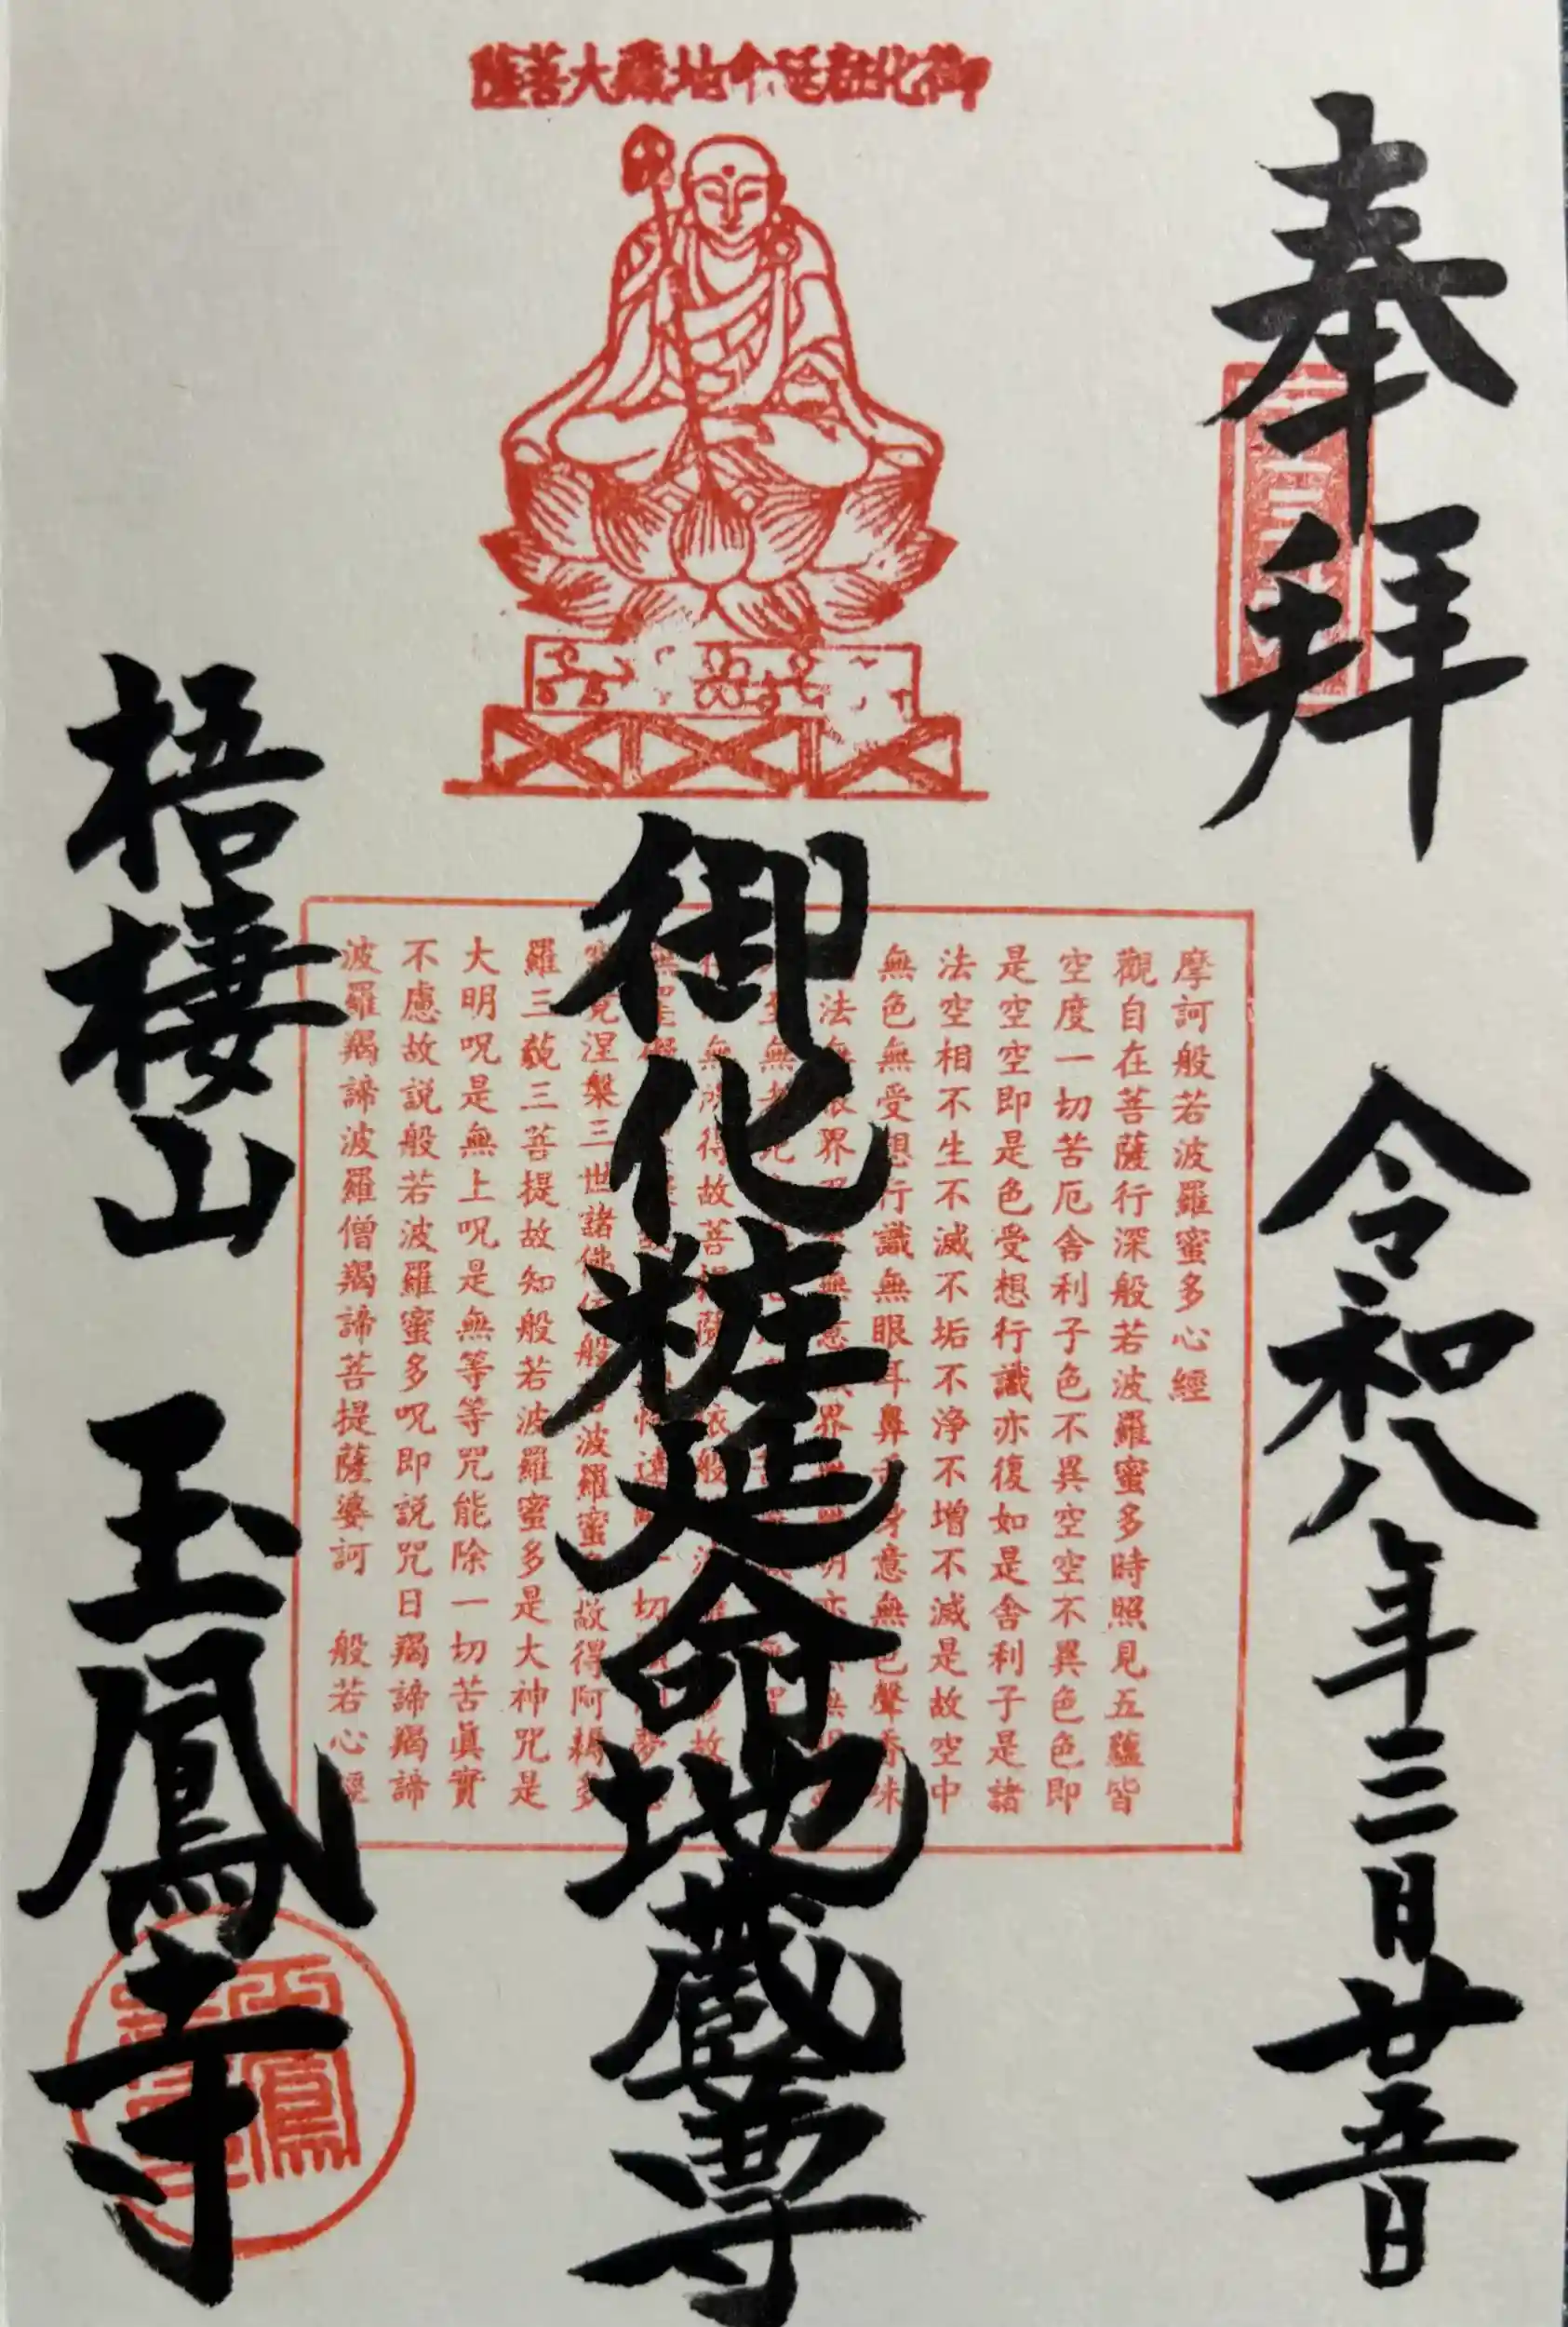 御化粧延命地蔵大菩薩
奉拝
令和八年三月廿五日
御化粧延命地蔵尊
摩訶般若波羅蜜多心經
觀自在菩薩行深般若波羅蜜多時照見五蘊皆
空度一切苦厄舎利子色不異空空不異色色即
是空空即是色受想行識亦復如是舎利子是諸
法空相不生不滅不垢不浄不增不滅是故空中
無色無受想行識無眼耳鼻身意無色聲香味
法無眼界無意界無
無所得故菩提
究竟涅槃三世諸佛依般波羅蜜故得阿耨多
羅三藐三菩提故知般若波羅蜜多是大神咒是
大明呪是無上呪是無等等咒能除一切苦眞實
不慮故説般若波羅蜜多呪即説咒曰羯諦羯諦
波羅羯諦波羅僧羯諦菩提薩婆訶 般若心經
梧棲山 玉鳳寺